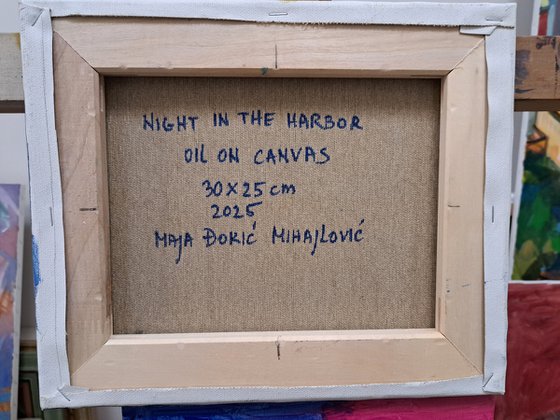 NIGHT IN THE HARBOR
OIL ON CANVAS
30x25 cm
2025
MAJA ĐOKIĆ MIHAJLOVIĆ